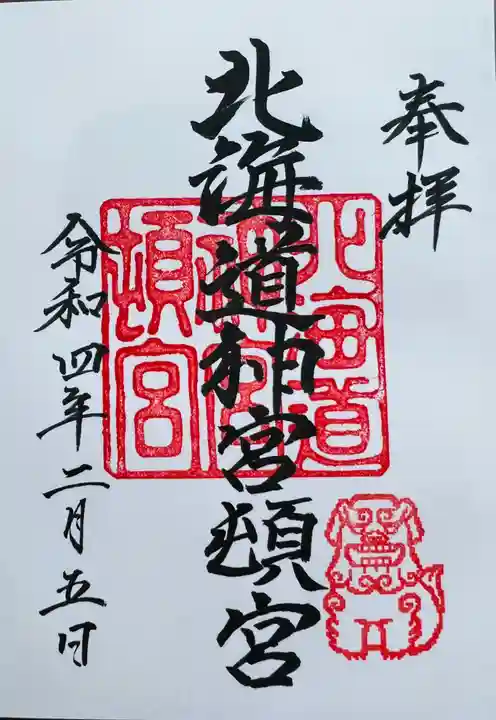 奉拝
北海道神宮頓宮
北海道
神宮
頓宮
令和四年二月五日